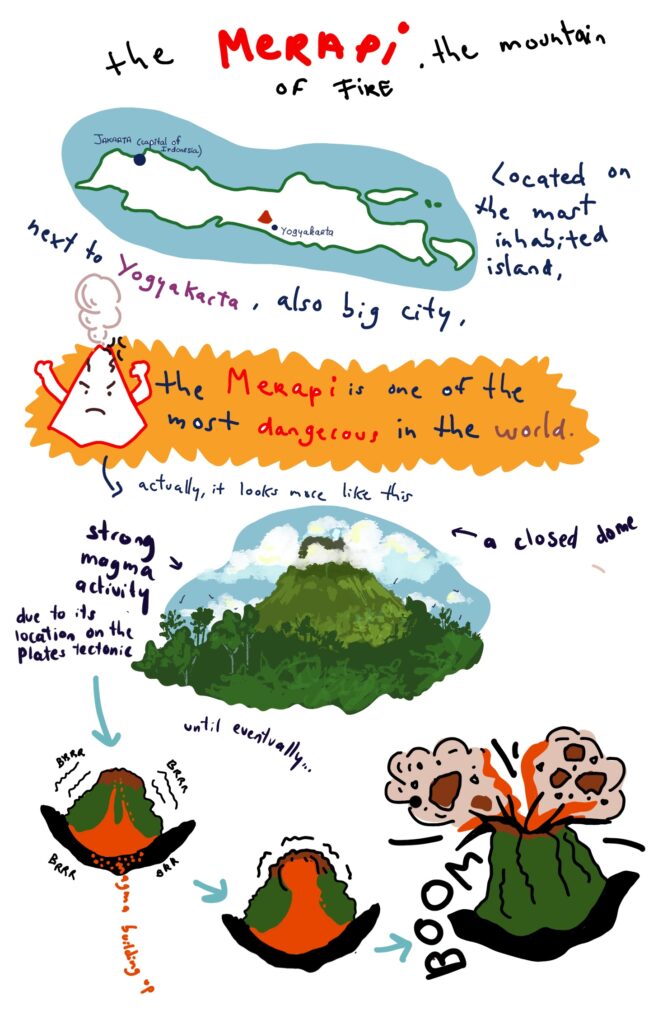 the MERAPi, the mountain
OF FIRE
JAKARTA (capital of
Indonesia)
Yogyakarta
Located on
the most
inhabited
island,
next to Yogyakarta, also big city,
the Merapi is one of the
most dangerous in the world.
actually, it looks more like this
a closed dome
strong
magma
activity
due to its
location on the
plates tectonic
until eventually...
BRRR
BRRR
BRRR
BRR
magma building up
BOOM